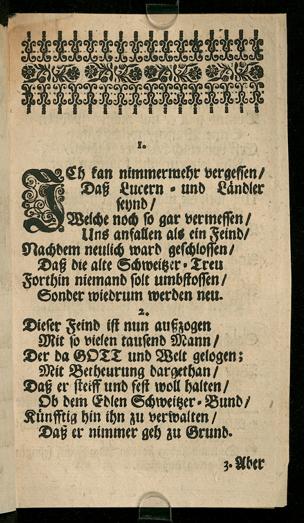 1.
ICh kan nimmermehr vergessen/
Daß Lucern - und Ländler
seynd/
Welche noch so gar vermessen/
Uns anfallen als ein Feind/
Nachdem neulich ward geschlossen/
Daß die alte Schweitzer-Treu
Forthin niemand solt umbstossen/
Sonder wiedrum werden neu.
2.
Dieser Feind ist nun außzogen
Mit so vielen tausend Mann/
Der da GOTT und Welt gelogen;
Mit Betheurung dargethan/
Daß er steiff und fest woll halten/
Ob dem Edlen Schweitzer-Bund/
Künfftig hin ihn zu verwalten/
Daß er nimmer geh zu Grund.
3. Aber